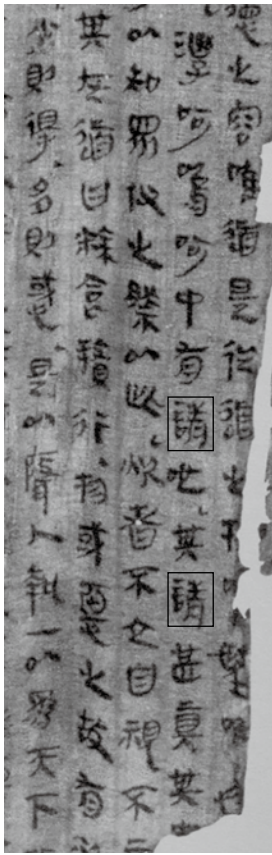 德之容唯道是從道之物唯朢唯
呵鳴呵中有請吔其請甚真其
以知眾仪之然以此炊者不立自視不
其在道曰粽食贅行物或惡之故有
少則得多則惑是以聲人執一以為天下